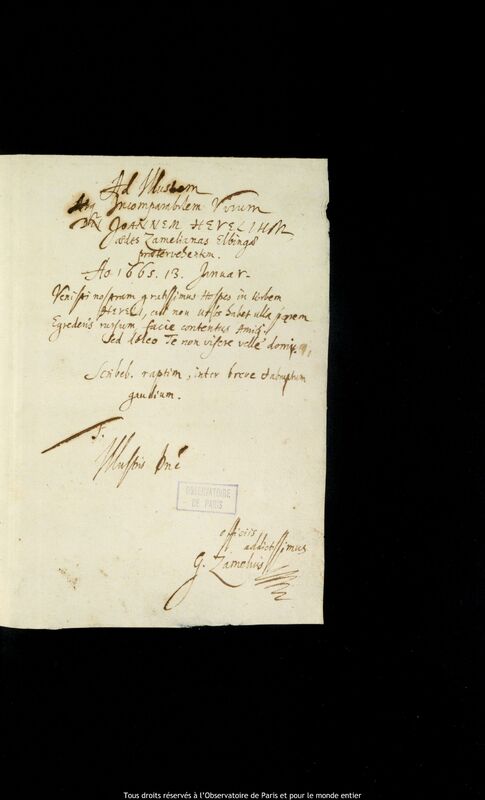 Ad Illustrem
Atq Incomparabilem Virum
DN. JOANNEM HEVELIUM
aedes Zamelianas Elbingae
praetervehentem.
Ao. 1665. 13. Januar.
Venisti nostram gratissimus Hospes in Urbem
HEVELI, cui non Urbs habet ulla parem
Egrederis rursum, facie contentus Amici,
Sed doleo Te non visere velle domi.
Scribeb. raptim, inter breve et abruptum
gaudium.
T.
Illustris Dne
OBSERVATOIRE
DE PARIS
officiis
addictissimus
G. Zamelius
Tous droits réservés à l'Observatoire de Paris et pour le monde entier